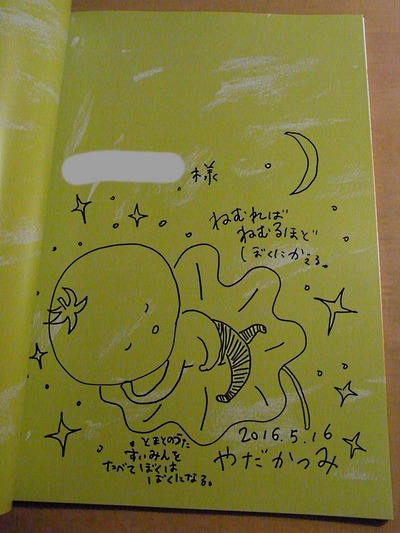 様
ねむれば
ねむるほど
ぼくにかえる。
とまとのうた
すいみんを
たべてぼくは
ぼくになる。
2016.5.16
やだかつみ